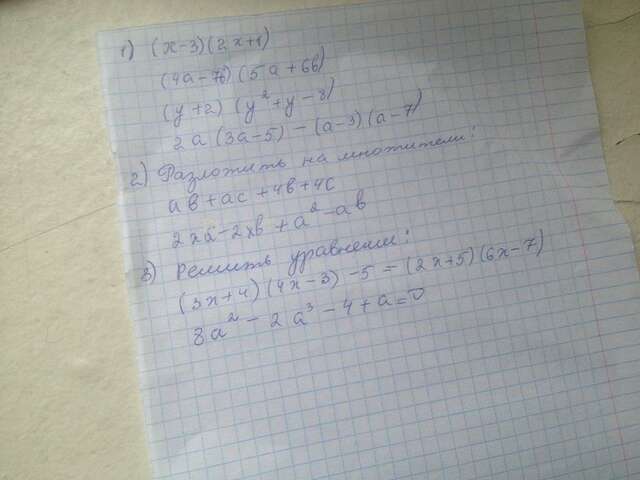 1) (x-3)(2x+1)
(4a-7b)(5a+6b)
(y+2)(y²+y-8)
2a(3a-5)-(a-3)(a-7)
2) Разложить на множители:
ab+ac+4b+4c
2xa-2xb+a²-ab
3) Решить уравнения:
(3x+4)(4x-3)-5=(2x+5)(6x-7)
8a²-2a³-4+a=0